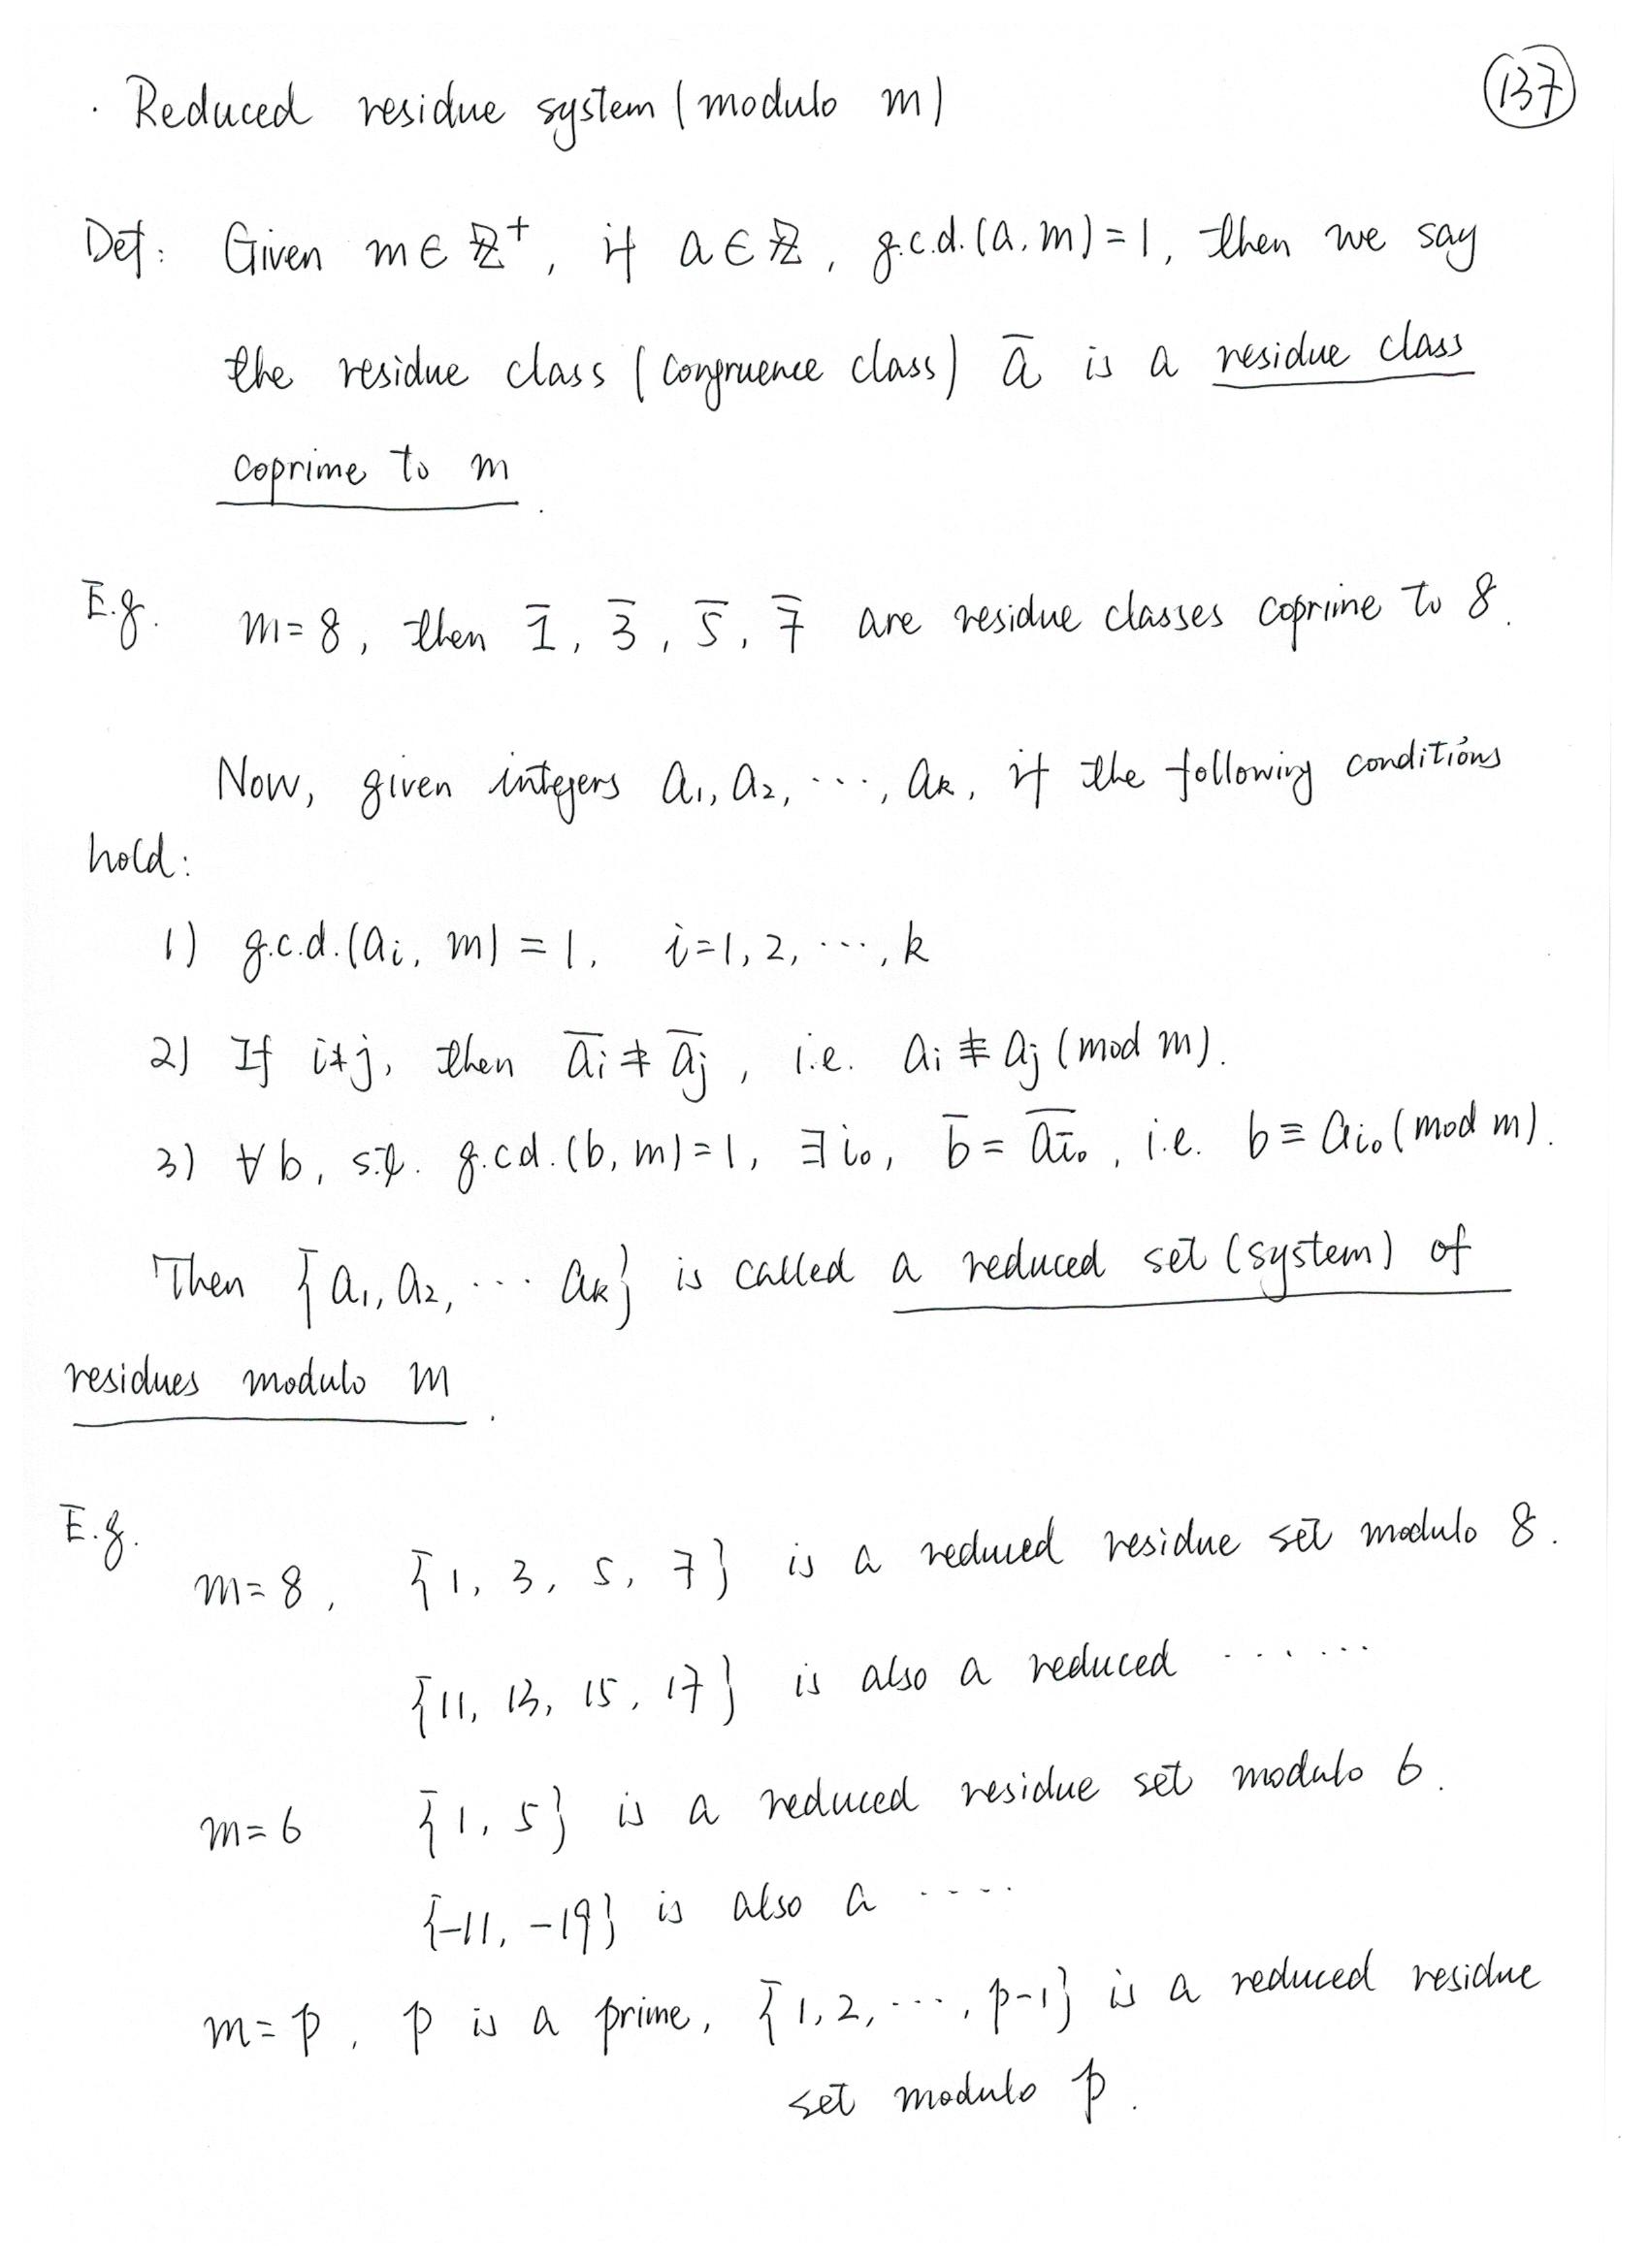 · Reduced residue system (modulo m)
137
Def: Given m ∈ ℤ⁺, if a ∈ ℤ, g.c.d.(a, m) = 1, then we say
the residue class (congruence class) a̅ is a residue class
coprime to m.
E.g. m = 8, then 1̅, 3̅, 5̅, 7̅ are residue classes coprime to 8.
Now, given integers a₁, a₂, ⋯, aₖ, if the following conditions
hold:
1) g.c.d.(aᵢ, m) = 1, i = 1, 2, ⋯, k
2) If i ≠ j, then a̅ᵢ ≠ a̅ⱼ, i.e. aᵢ ≢ aⱼ (mod m).
3) ∀ b, s.t. g.c.d.(b, m) = 1, ∃ i₀, b̅ = a̅ᵢ₀, i.e. b ≡ aᵢ₀ (mod m).
Then {a₁, a₂, ⋯ aₖ} is called a reduced set (system) of
residues modulo m.
E.g.
m = 8, {1, 3, 5, 7} is a reduced residue set modulo 8.
{11, 13, 15, 17} is also a reduced ⋯⋯
m = 6 {1, 5} is a reduced residue set modulo 6.
{-11, -19} is also a ⋯⋯
m = p, p is a prime, {1, 2, ⋯, p-1} is a reduced residue
set modulo p.